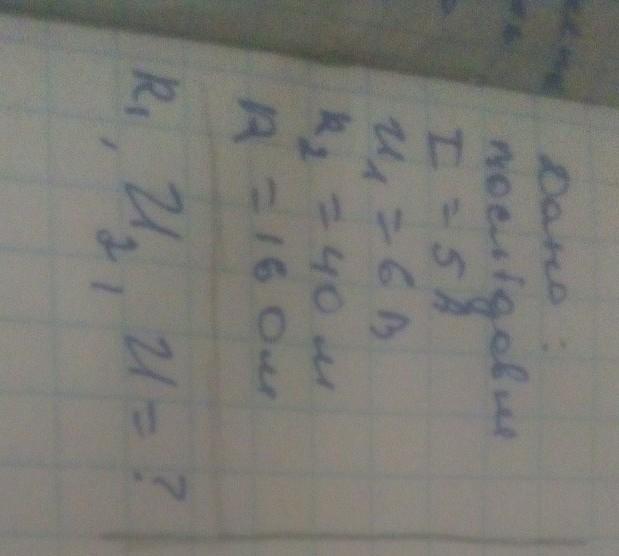 Дано:
послідовне
I = 5 A
U₁ = 6 В
R₂ = 4 Ом
R = 16 Ом
R₁, U₂, U = ?